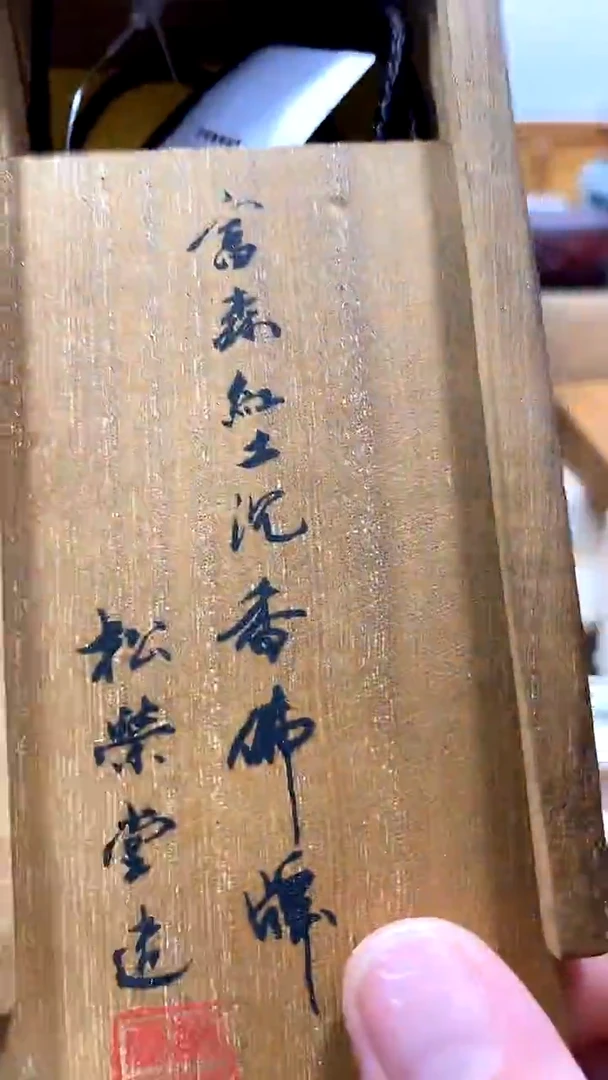 富森紅土沉香佛牌
松榮堂造